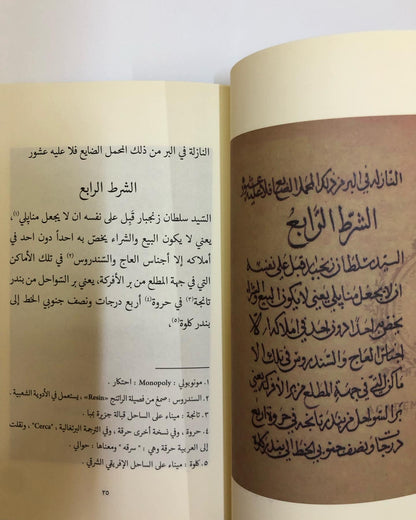 النازلة في البر من ذلك المحمل الضايع فلا عليه عشور
الشرط الرابع
السّيد سلطان زنجبار قَبل على نفسه ان لا يجعل منابلي (١)،
يعني لا يكون البيع والشراء يخصّ به احداً دون احد في
أملاكه إلا أجناس العاج والسّندروس (٢) في تلك الأماكن
التي في جهة المطلع من بر الأفركة، يعني بر السّواحل من بندر
تانجة (٣) في حروة (٤) أربع درجات ونصف جنوبي الخط إلى
بندر كلوة (٥)،
١. مونوبولي : Monopoly : احتكار .
٢. السندروس : صمغ من فصيلة الراتنج «Resin»، يستعمل في الأدوية الشعبية .
٣. تانجة : ميناء على الساحل قبالة جزيرة بمبا .
٤. حروة ، وفي نسخة أخرى حرقة ، وفي الترجمة البرتغالية , "Cerca" ، ونقلت
إلى العربية حرقة وهي : " سرقه " ومعناها : حوالي .
٥. كلوة : ميناء على الساحل الإفريقي الشرقي .
٣٥
النازله في البر من ذلك المحمل الضايع فلا عليه عشور
الشرط الرابع
السيد سلطان زنجبار قبل على نفسه
ان لا يجعل منابلي يعني لا يكون البيع والشرا
يخص به احدا دون احد في املاكه الا
اجناس العاج والسندروس في تلك الا
ماكن التي في جهة المطلع من بر الافركه يعني
بر السواحل من بندر تانجه في حروة اربع
درجات ونصف جنوبي الخط الى بندر كلوة